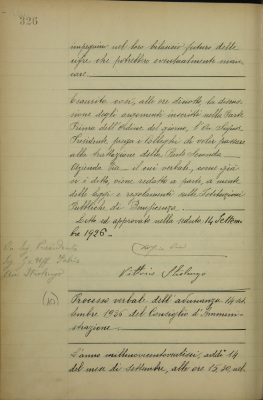 326
impegnino nel loro bilancio futuro delle
cifre che potrebbero eventualmente man-
care.
Esaurita così, alle ore diciotto la discus-
sione degli argomenti inscritti nella Parte
Prima dell'Ordine del giorno, l'On. Signor
Presidente prega i Colleghi di voler passare
alla trattazione della Parte Seconda
il cui verbale, come già
si è detto, viene redatto a parte, a mente
delle leggi e regolamenti sulle Istituzioni
Pubbliche di Beneficenza.
Letto ed approvato nella seduta 14 Settem-
bre 1926.
Vittorio
(10)
Processo verbale dell'adunanza 14 set-
tembre 1926 del Consiglio d'Ammini-
strazione
L'anno millenovecentoventisei, addì 14
del mese di Settembre, alle ore 15,30, nel